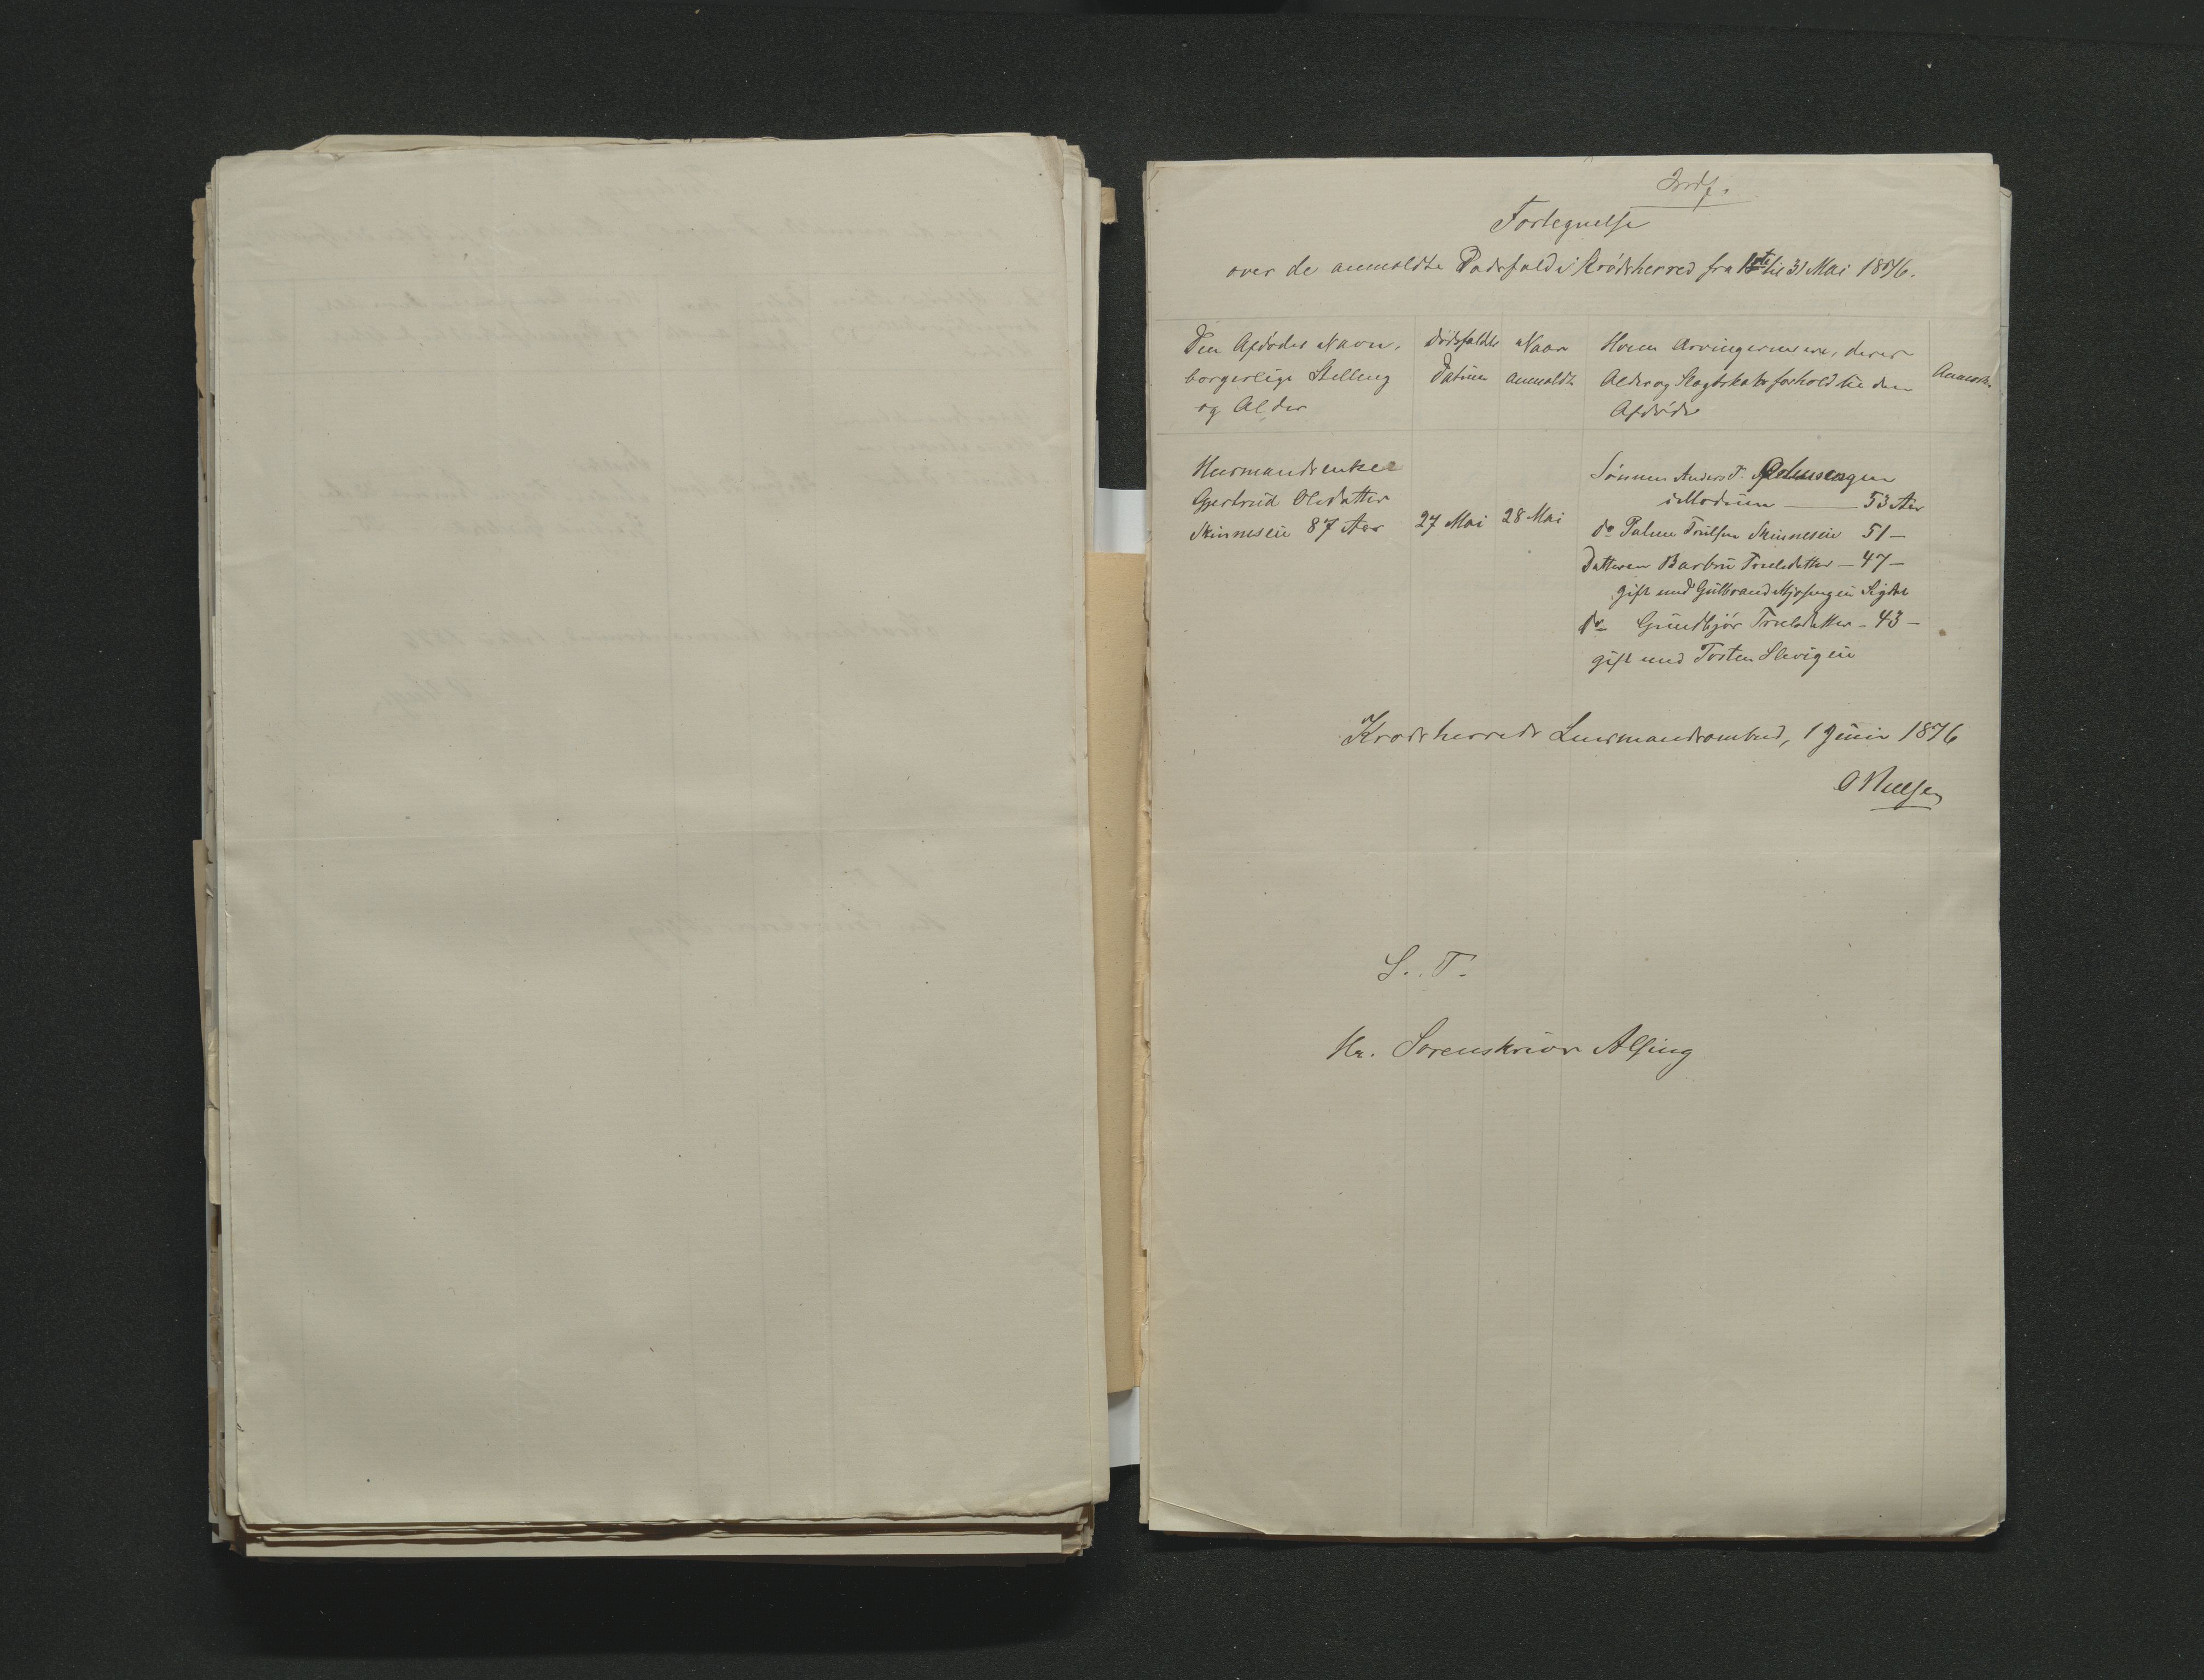 Indf.
Fortegnelse
over de anmeldte Dødsfald i Krødsherred fra 1ste til 31 Mai 1876.
Den Afdødes Navn,
borgerlige Stilling
og Alder
Dødsfaldets
Datum
Naar
anmeldt
Hvem Arvingerne ere, deres
Alder og Slægtskabsforhold til den
Afdøde
Anmærk.
Huusmandsenke
Gjertrud Olsdatter
Skinneseie 87 Aar
27 Mai
28 Mai
Sønnen Anders T.
i Modum — 53 Aar
do Palme Trulsen Skinneseie 51 —
Datteren Barbru Truelsdatter — 47 —
gift med Gulbrand
do Gundbjør Truelsdatter — 43 —
gift med Torsten Slevigeie
Krødsherreds Lensmandsombud, 1 Juni 1876
O Nielsen
S. T.
Hr. Sorenskriver Alsing